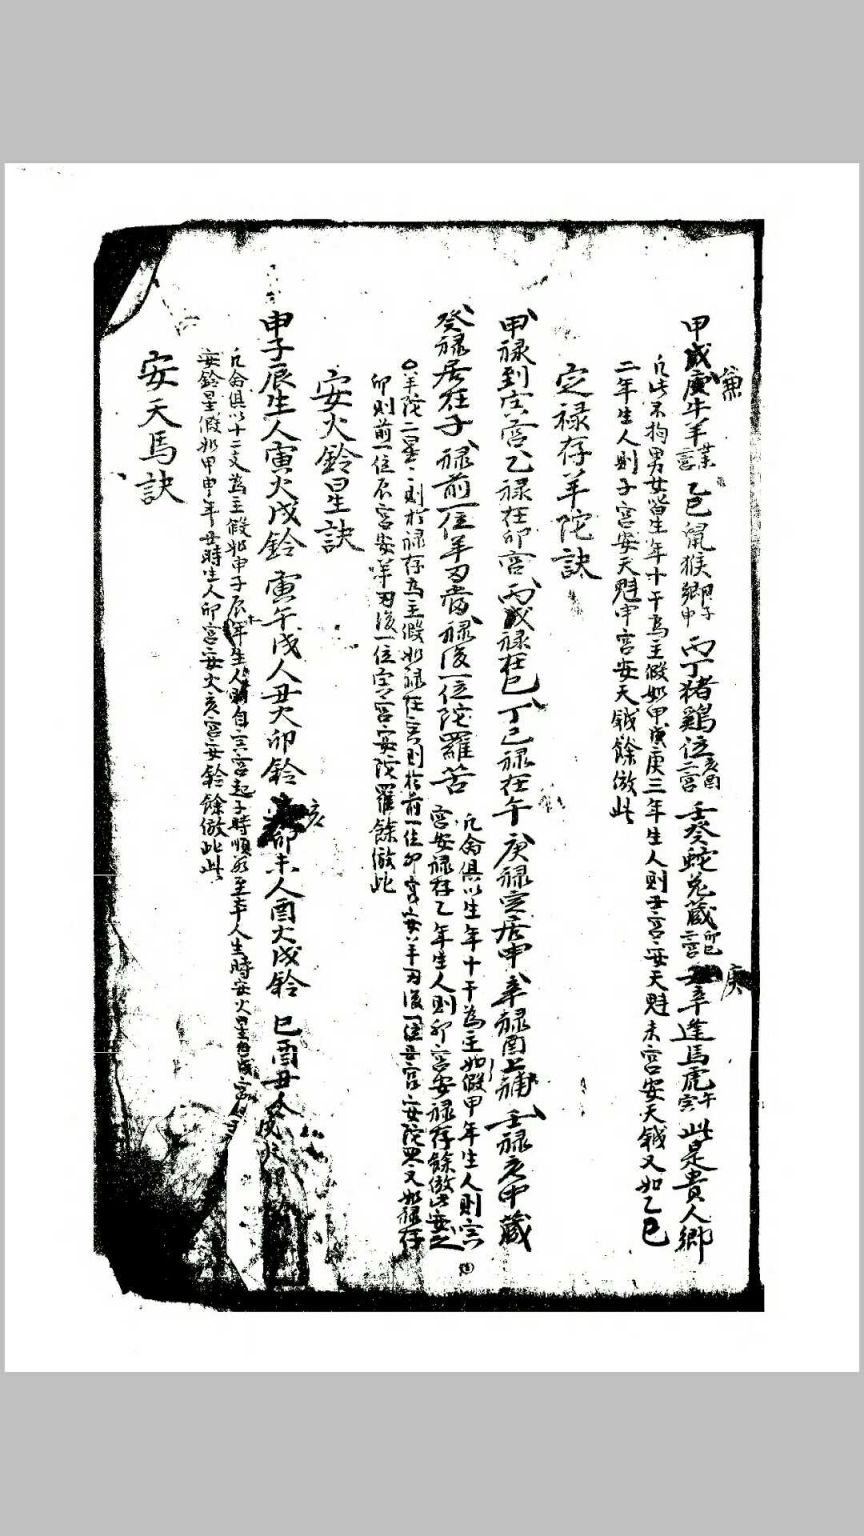 甲戊庚牛羊丑未宮乙己鼠猴鄉子申丙丁猪鷄位亥酉二宮壬癸蛇兔藏卯巳二宮辛逢馬虎午寅此是貴人鄉
兼
庚
凡此不拘男女當生年十干為主假如甲戊庚三年生人則丑宮安天魁未宮安天鉞又如乙己
二年生人則子宮安天魁申宮安天鉞餘倣此
定禄存羊陀訣
甲禄到寅宮乙禄在卯宮丙戊禄在巳丁己禄在午庚禄定居申辛禄酉上補壬禄亥中藏
癸禄居在子禄前一位羊刃當禄後一位陀羅苦
凡命俱以生年十干為主如假甲年生人則寅
宮安禄存乙年生人則卯宮安禄存餘倣此安之
羊陀二星則於禄存為主假如禄在寅則於前一位卯宮安羊刃後一位丑宮安陀羅又如禄存
卯則前一位辰宮安羊刃後一位寅宮安陀羅餘倣此
安火鈴星訣
申子辰生人寅火戌鈴寅午戌人丑火卯鈴亥卯未人酉火戌鈴巳酉丑人
凡命俱以十二支為主假如申子辰年生人則自寅宮起子時順數至本人生時安火星
安鈴星假如甲申年丑時生人卯宮安火亥宮安鈴餘倣此此
安天馬訣